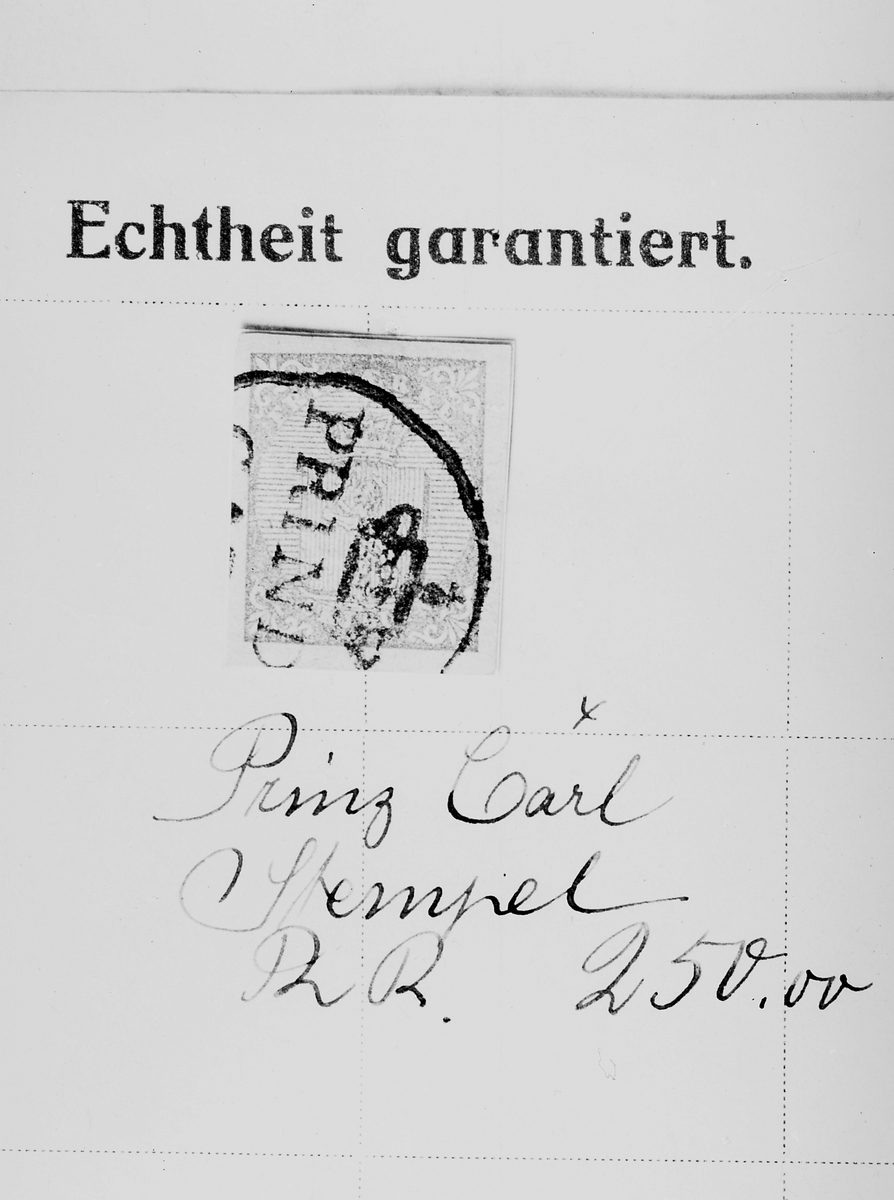 Echtheit garantiert.
PRIND
Prinz Carl
Stempel
RR. 250.00